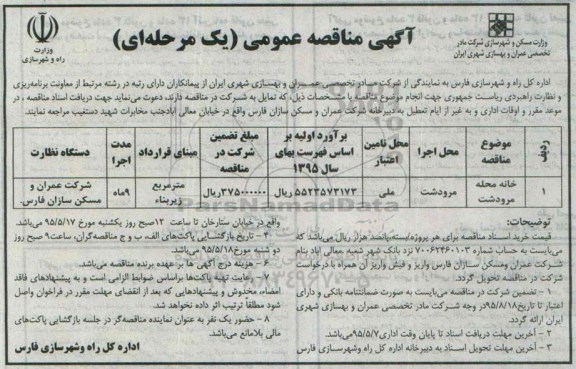 آگهی مناقصه عمومی (یک مرحله‌ای)
وزارت مسکن و شهرسازی شرکت مادر
تخصصی عمران و بهسازی شهری ایران
وزارت
راه و شهرسازی
اداره کل راه و شهرسازی فارس به نمایندگی از شرکت مادر تخصصی عمــران و بهسازی شهری ایران از پیمانکاران دارای رتبه در رشته مرتبط از معاونت برنامه‌ریزی
و نظارت راهبردی ریاست جمهوری جهت انجام موضوع مناقصه با مشخصات ذیل، که تمایل به شــرکت در مناقصه دارند، دعوت می‌نماید جهت دریافت اسناد مناقصه ، در
موعد مقرر و اوقات اداری و به غیر از ایام تعطیل به دبیرخانه شرکت عمران و مسکن سازان فارس واقع در خیابان معالی آبادجنب مخابرات شهید دستغیب مراجعه نمایند.
ردیف	موضوع مناقصه	محل اجرا	محل تامین اعتبار	برآورد اولیه بر اساس فهرست بهای سال ۱۳۹۵	مبلغ تضمین شرکت در مناقصه	مبنای قرارداد	مدت اجرا	دستگاه نظارت
۱	خانه محله مرودشت	مرودشت	ملی	۵۵۲۳۵۷۳۱۷۳ ریال	۳۷۵۰۰۰۰۰۰ریال	مترمربع زیربناء	۹ماه	شرکت عمران و مسکن سازان فارس.
توضیحات:
قیمت خرید اسناد مناقصه برای هر پروژه/بسته‌پانصد هزار ریال می‌باشد که
می‌بایست به حساب شماره ۷۰۰۶۲۴۶۰۱۰۳ نزد بانک شهر شعبه معالی آباد بنام
شــرکت عمران ومسکن ســازان فارس واریز و فیش واریز آن همراه با درخواست
شرکت در مناقصه تحویل گردد.
۱ – تضمین شرکت در مناقصه می‌بایست به صورت ضمانتنامه بانکی و دارای
اعتبار تا تاریخ۹۵/۸/۱۸در وجه شــرکت مادر تخصصی عمران و بهسازی شهری
ایران ارائه گردد.
۲ – آخرین مهلت دریافت اسناد تا پایان وقت اداری۹۵/۵/۷می‌باشد.
۳ – آخرین مهلت تحویل اســناد به دبیرخانه اداره کل راه وشهرســازی فارس
واقع در خیابان ستارخان تا ساعت ۱۲صبح روز یکشنبه مورخ ۹۵/۵/۱۷ می‌باشد.
۴ – تاریخ بازگشایی پاکت‌های الف، ب و ج مناقصه‌گران، ساعت۹ صبح روز
دو شنبه مورخ۹۵/۵/۱۸ می‌باشد.
۶ – هزینه درج آگهی ها بر عهده برنده مناقصه می‌باشد.
۷ – رعایت تهیه پاکت‌ها براساس ضوابط الزامی است و به پیشنهادهای فاقد
امضاء، مخدوش و پیشنهادهایی که بعد از انقضای مهلت مقرر در فراخوان واصل
شود مطلقاً ترتیب اثر داده نخواهد شد.
۸ – حضور یک نفر به عنوان نماینده مناقصه‌گر در جلسه بازگشایی پاکت‌های
مالی بلامانع می‌باشد.
اداره کل راه وشهرسازی فارس
ParsNamadData